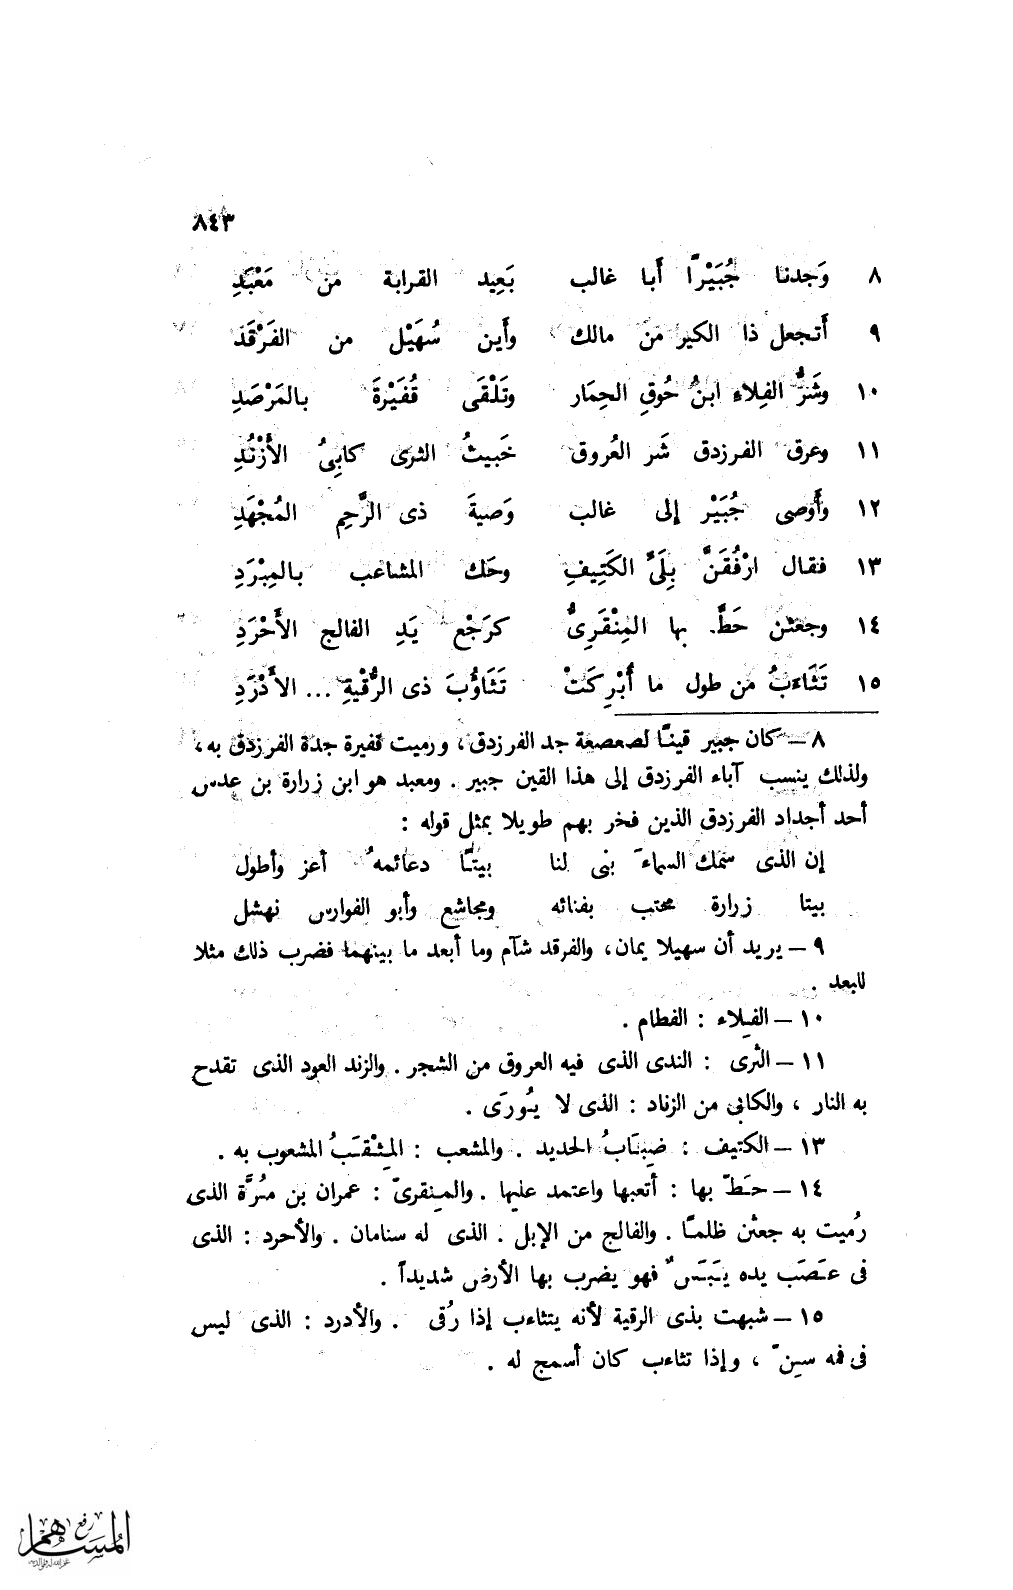 ٨٤٣
٨ وَجدنا جُبَيْرًا أَبا غالب بَعِيد القرابة من مَعْبَدِ
٩ أَتجعل ذا الكير من مالك وأَين سُهَيْل من الفَرْقَد
١٠ وشَرُّ الفِلاءِ ابنُ حُوقِ الحِمَار وتَلْقَى قُفَيْرةَ بالمَرْصَدِ
١١ وعرق الفرزدق شَر العُروق خَبيثُ الثرى كابِىُ الأَزْنُدِ
١٢ وأَوصى جُبَيْر إلى غالب وَصيةَ ذى الرَّحِمِ المُجْهَدِ
١٣ فقال ارْفُقَنَّ بِلَىِّ الكَتِيفِ وحَك المشاعب بالمِبْرَدِ
١٤ وجعثن حَطَّ بها المِنْقَرِىُّ كرَجْعِ يَدِ الفالج الأَحْرَدِ
١٥ تَثَاءَبُ من طول ما أُبْرِكَتْ تَثَاؤُبَ ذى الرُّقْيةِ ... الأَدْرَدِ
٨ – كان جبير قينًا لصعصعة جد الفرزدق، ورميت قفيرة جدة الفرزدق به،
ولذلك ينسب آباء الفرزدق إلى هذا القين جبير . ومعبد هو ابن زرارة بن عدس
أحد أجداد الفرزدق الذين فخر بهم طويلا بمثل قوله :
إن الذى سمك السماءَ بنى لنا بيتًا دعائمهُ أعز وأطول
بيتا زرارة محتب بفنائه ومجاشع وأبو الفوارس نهشل
٩ – يريد أن سهيلا يمان، والفرقد شآم وما أبعد ما بينهما فضرب ذلك مثلا
للبعد .
١٠ – الفِلاء : الفطام .
١١ – الثرى : الندى الذى فيه العروق من الشجر . والزند العود الذى تقدح
به النار ، والكابى من الزناد : الذى لا يُورَى .
١٣ – الكتيف : ضِبَابُ الحديد . والمشعب : المِثْقَبُ المشعوب به .
١٤ – حَطّ بها : أتعبها واعتمد عليها . والمِنقرىّ : عمران بن مُرَّة الذى
رُميت به جعثن ظلمًا . والفالج من الإبل . الذى له سنامان . والأحرد : الذى
فى عَصَب يده يَبَسٌ فهو يضرب بها الأرض شديداً .
١٥ – شبهت بذى الرقية لأنه يتثاءب إذا رُقى . والأدرد : الذى ليس
فى فمه سِنّ ، وإذا تثاءب كان أسمج له .